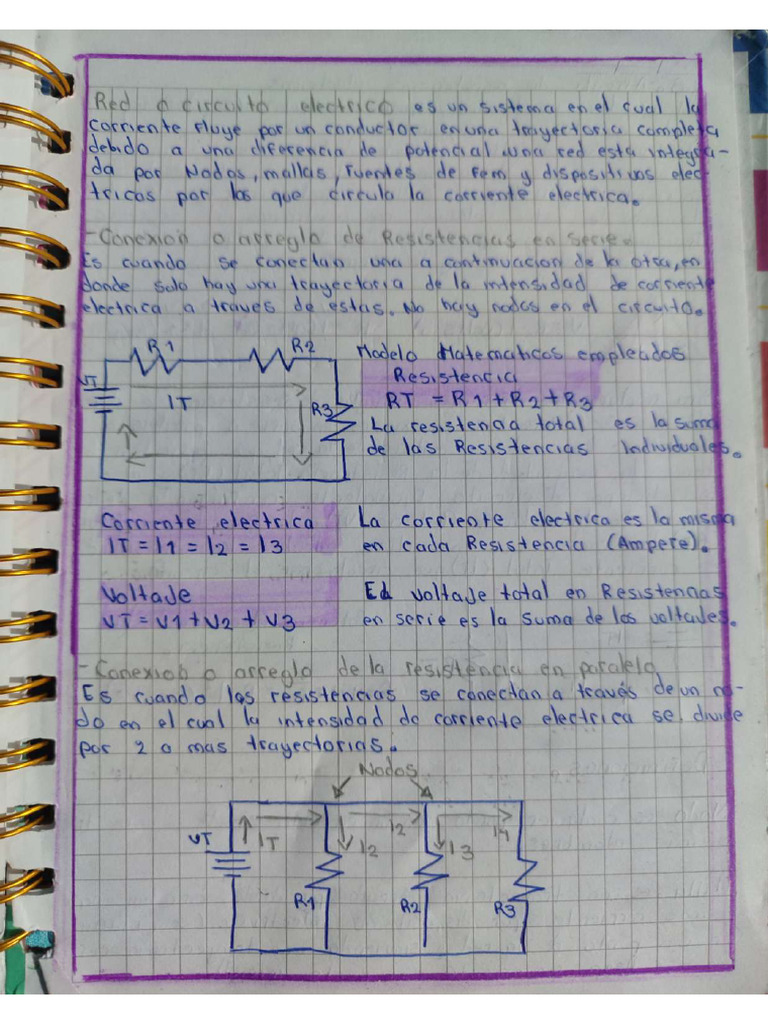 Red o circuito electrico es un sistema en el cual la
corriente fluye por un conductor en una trayectoria completa
debido a una diferencia de potencial una red esta integra-
da por Nodos, mallas, fuentes de fem y dispositivos elec-
tricos por los que circula la corriente electrica.
- Conexion o arreglo de Resistencias en serie.
Es cuando se conectan una a continuacion de la otra, en
donde solo hay una trayectoria de la intensidad de corriente
electrica a traves de estas. No hay nodos en el circuito.
R1 R2
VT
IT
R3
Modelo Matematicos empleados
Resistencia
RT = R1 + R2 + R3
La resistencia total es la suma
de las Resistencias Individuales.
Corriente electrica
IT = I1 = I2 = I3
La corriente electrica es la misma
en cada Resistencia (Ampere).
Voltaje
VT = V1 + V2 + V3
El voltaje total en Resistencias
en serie es la suma de los voltajes.
- Conexion o arreglo de la resistencia en paralelo
Es cuando las resistencias se conectan a través de un no-
do en el cual la intensidad de corriente electrica se divide
por 2 o mas trayectorias.
Nodos
VT IT I2 I2 I3 I4
R1 R2 R3